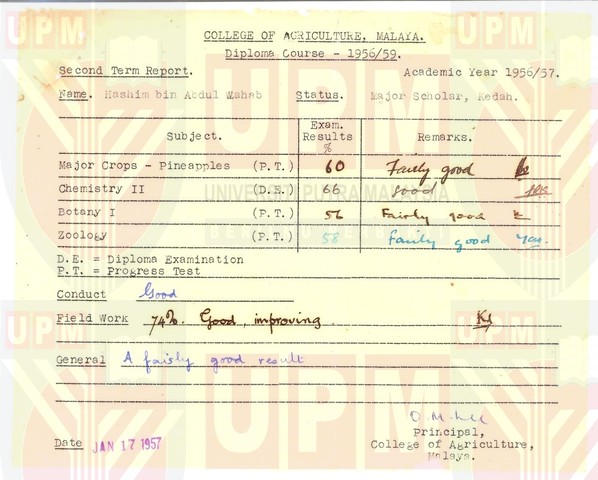 COLLEGE OF AGRICULTURE, MALAYA.
Diploma Course - 1956/59.
Second Term Report. Academic Year 1956/57.
Name. Hashim bin Abdul Wahab Status. Major Scholar, Kedah.
Subject. Exam. Results % Remarks.
Major Crops - Pineapples (P.T.) 60 Fairly good
Chemistry II (D.E.) 66 Good
Botany I (P.T.) 56 Fairly good
Zoology (P.T.) 58 Fairly good
D.E. = Diploma Examination
P.T. = Progress Test
Conduct Good
Field Work 74%. Good, improving.
General A fairly good result
Principal,
Date JAN 17 1957 College of Agriculture,
Malaya.
UPM
UNIVERSITI PUTRA MALAYSIA